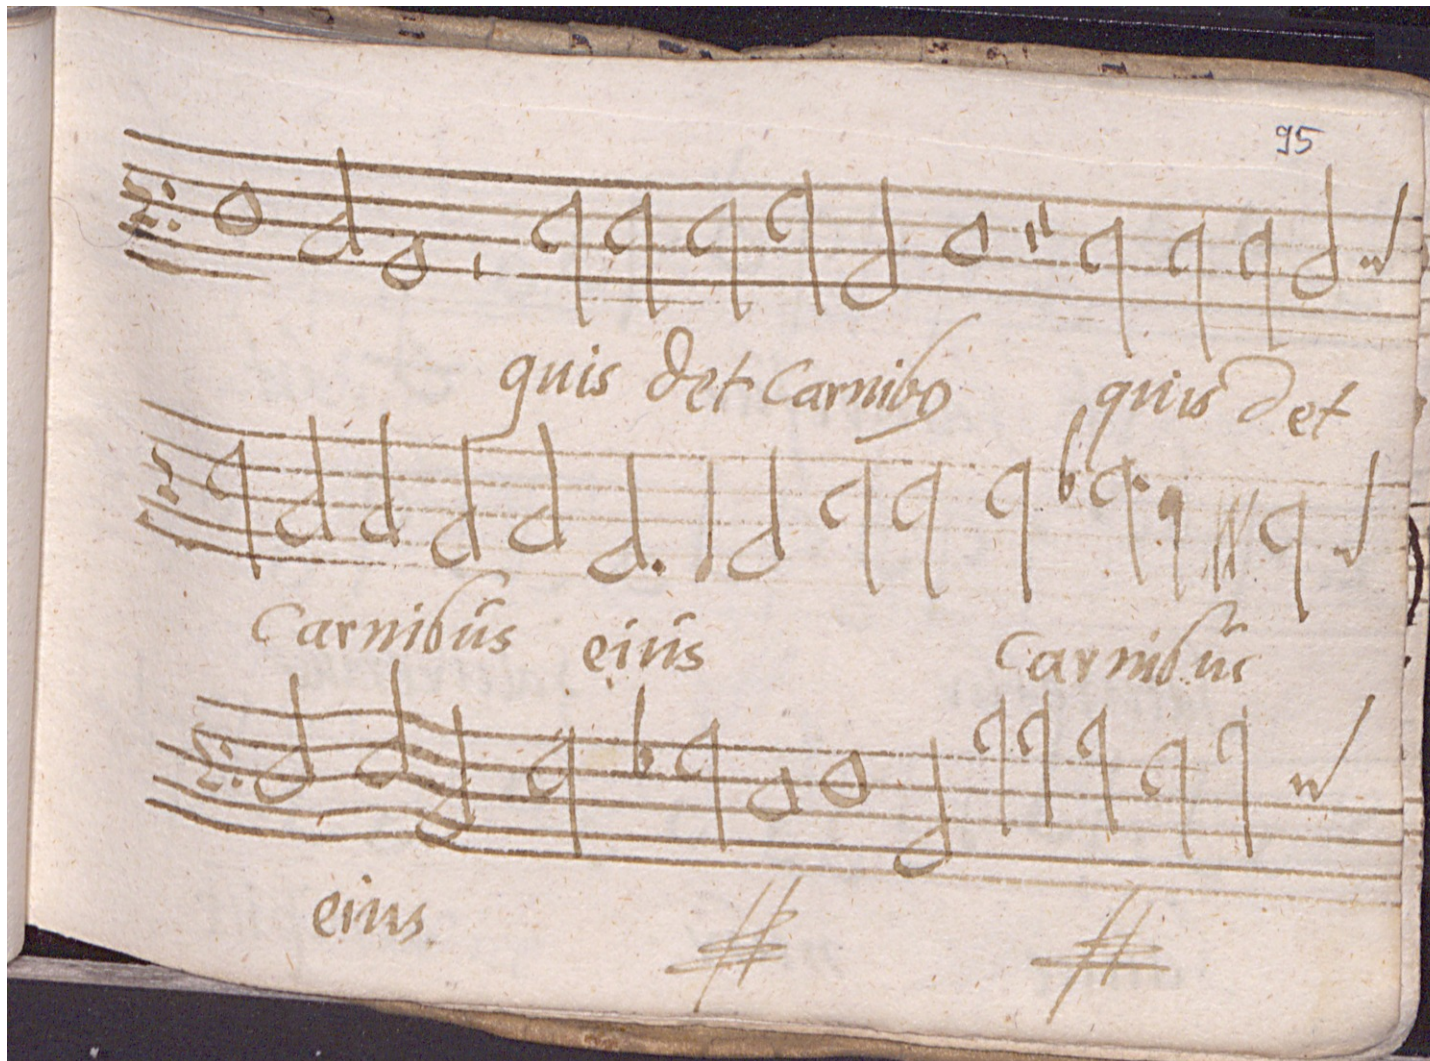 95
quis det carnibꝰ quis det
carnibus eius carnibus
eius